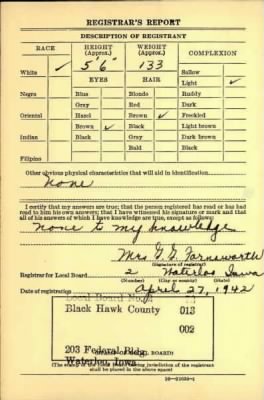 REGISTRAR'S REPORT
DESCRIPTION OF REGISTRANT
RACE HEIGHT (Approx.) WEIGHT (Approx.) COMPLEXION
White ✓ 5'6" 133 Sallow
EYES HAIR Light ✓
Negro Blue Blonde Ruddy
Gray Red Dark
Oriental Hazel Brown ✓ Freckled
Brown ✓ Black Light brown
Indian Black Gray Dark brown
Bald Black
Filipino
Other obvious physical characteristics that will aid in identification
None
I certify that my answers are true; that the person registered has read or has had
read to him his own answers; that I have witnessed his signature or mark and that
all of his answers of which I have knowledge are true, except as follows:
None to my knowledge
Mrs G. G. Farnsworth
(Signature of registrar)
Registrar for Local Board 2 Waterloo Iowa
(Number) (City or county) (State)
Date of registration April 27, 1942
Local Board No. 2 73
Black Hawk County 013
002
203 Federal Bldg.
Waterloo, Iowa
(The stamp of the Local Board having jurisdiction of the registrant
shall be placed in the above space)